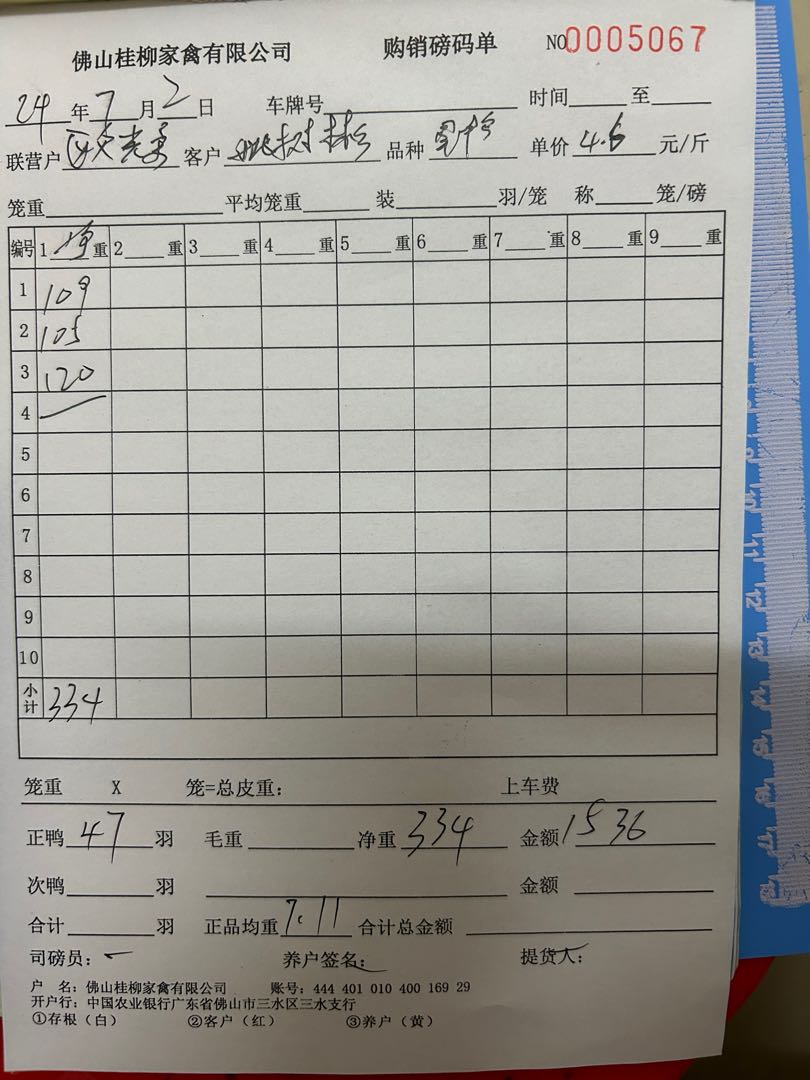 佛山桂柳家禽有限公司 购销磅码单 NO0005067
24年7月2日 车牌号 时间 至
联营户 客户 品种 单价4.6元/斤
笼重 平均笼重 装 羽/笼 称 笼/磅
编号 1净重 2 重 3 重 4 重 5 重 6 重 7 重 8 重 9 重
1 109
2 105
3 120
4
5
6
7
8
9
10
小计 334
笼重 X 笼=总皮重: 上车费
正鸭47羽 毛重 净重334 金额1536
次鸭 羽 金额
合计 羽 正品均重7.11 合计总金额
司磅员: 养户签名: 提货人:
户 名: 佛山桂柳家禽有限公司 账号: 444 401 010 400 169 29
开户行: 中国农业银行广东省佛山市三水区三水支行
①存根(白) ②客户(红) ③养户(黄)